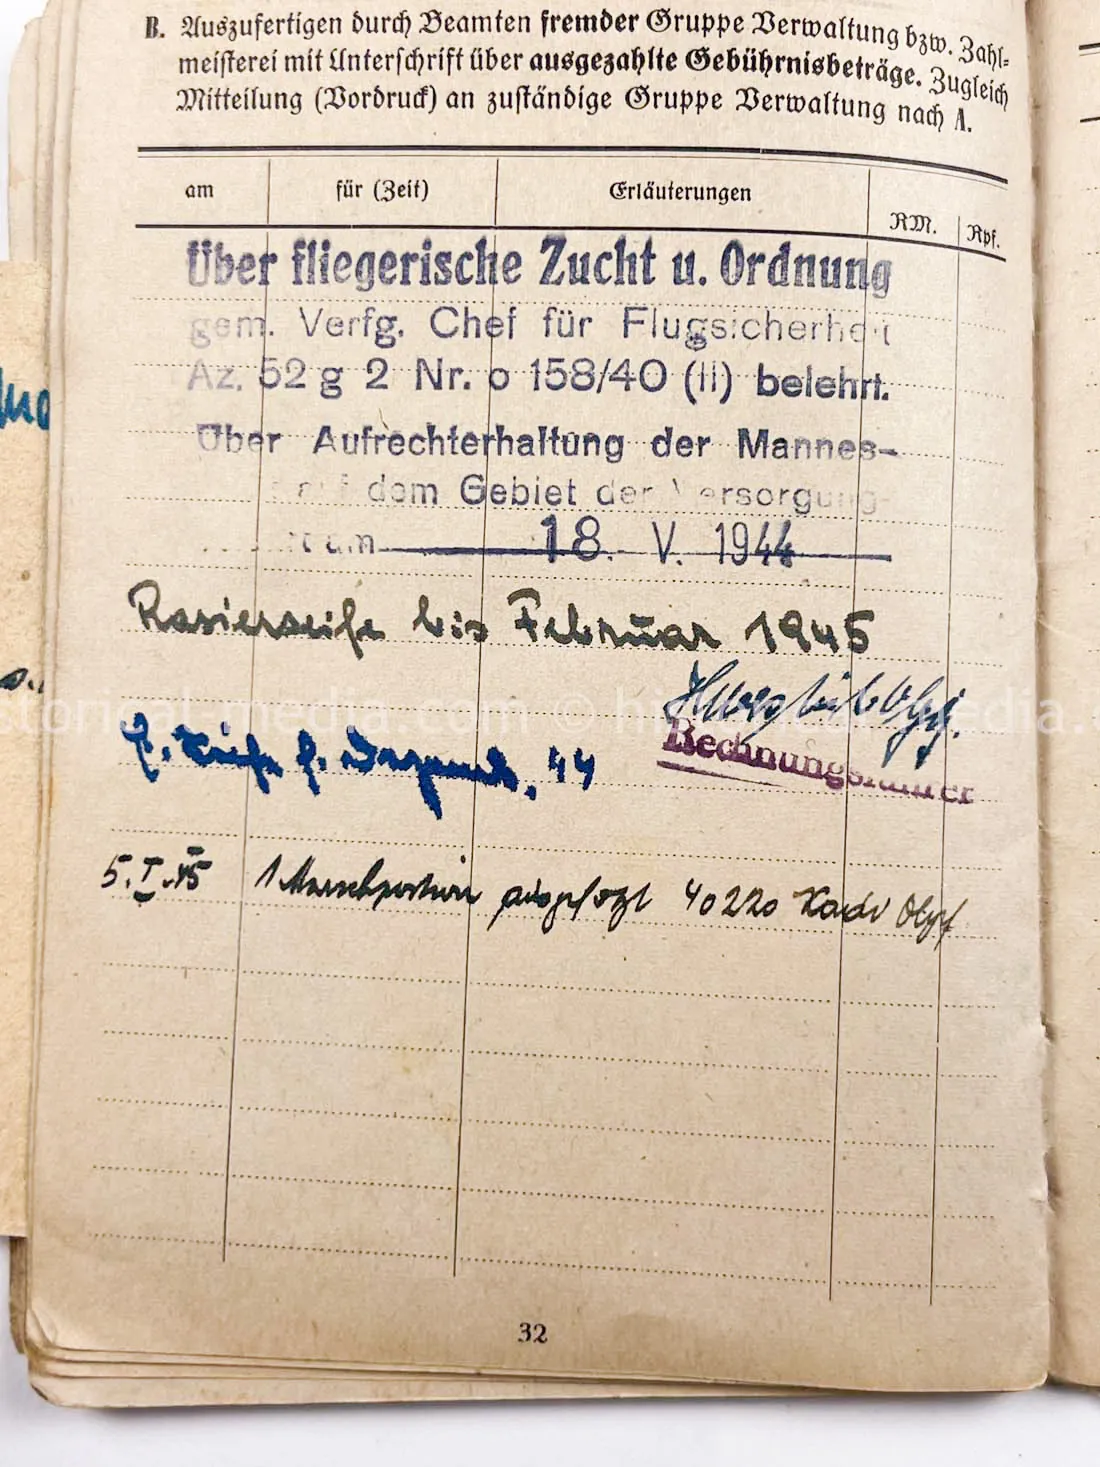 B. Auszufertigen durch Beamten fremder Gruppe Verwaltung bzw. Zahl-
meisterei mit Unterschrift über ausgezahlte Gebührnisbeträge. Zugleich
Mitteilung (Vordruck) an zuständige Gruppe Verwaltung nach A.
am für (Zeit) Erläuterungen RM. Rpf.
Über fliegerische Zucht u. Ordnung
gem. Verfg. Chef für Flugsicherheit
Az. 52 g 2 Nr. o 158/40 (II) belehrt.
Über Aufrechterhaltung der Mannes-
auf dem Gebiet der Versorgung-
am 18. V. 1944
Rasierseife bis Februar 1945
Rechnungsführer
f. Dezemb. 44
5. I. 45 1 Marschportion 40220 Obgf
32
historical-media.com © historical-media.